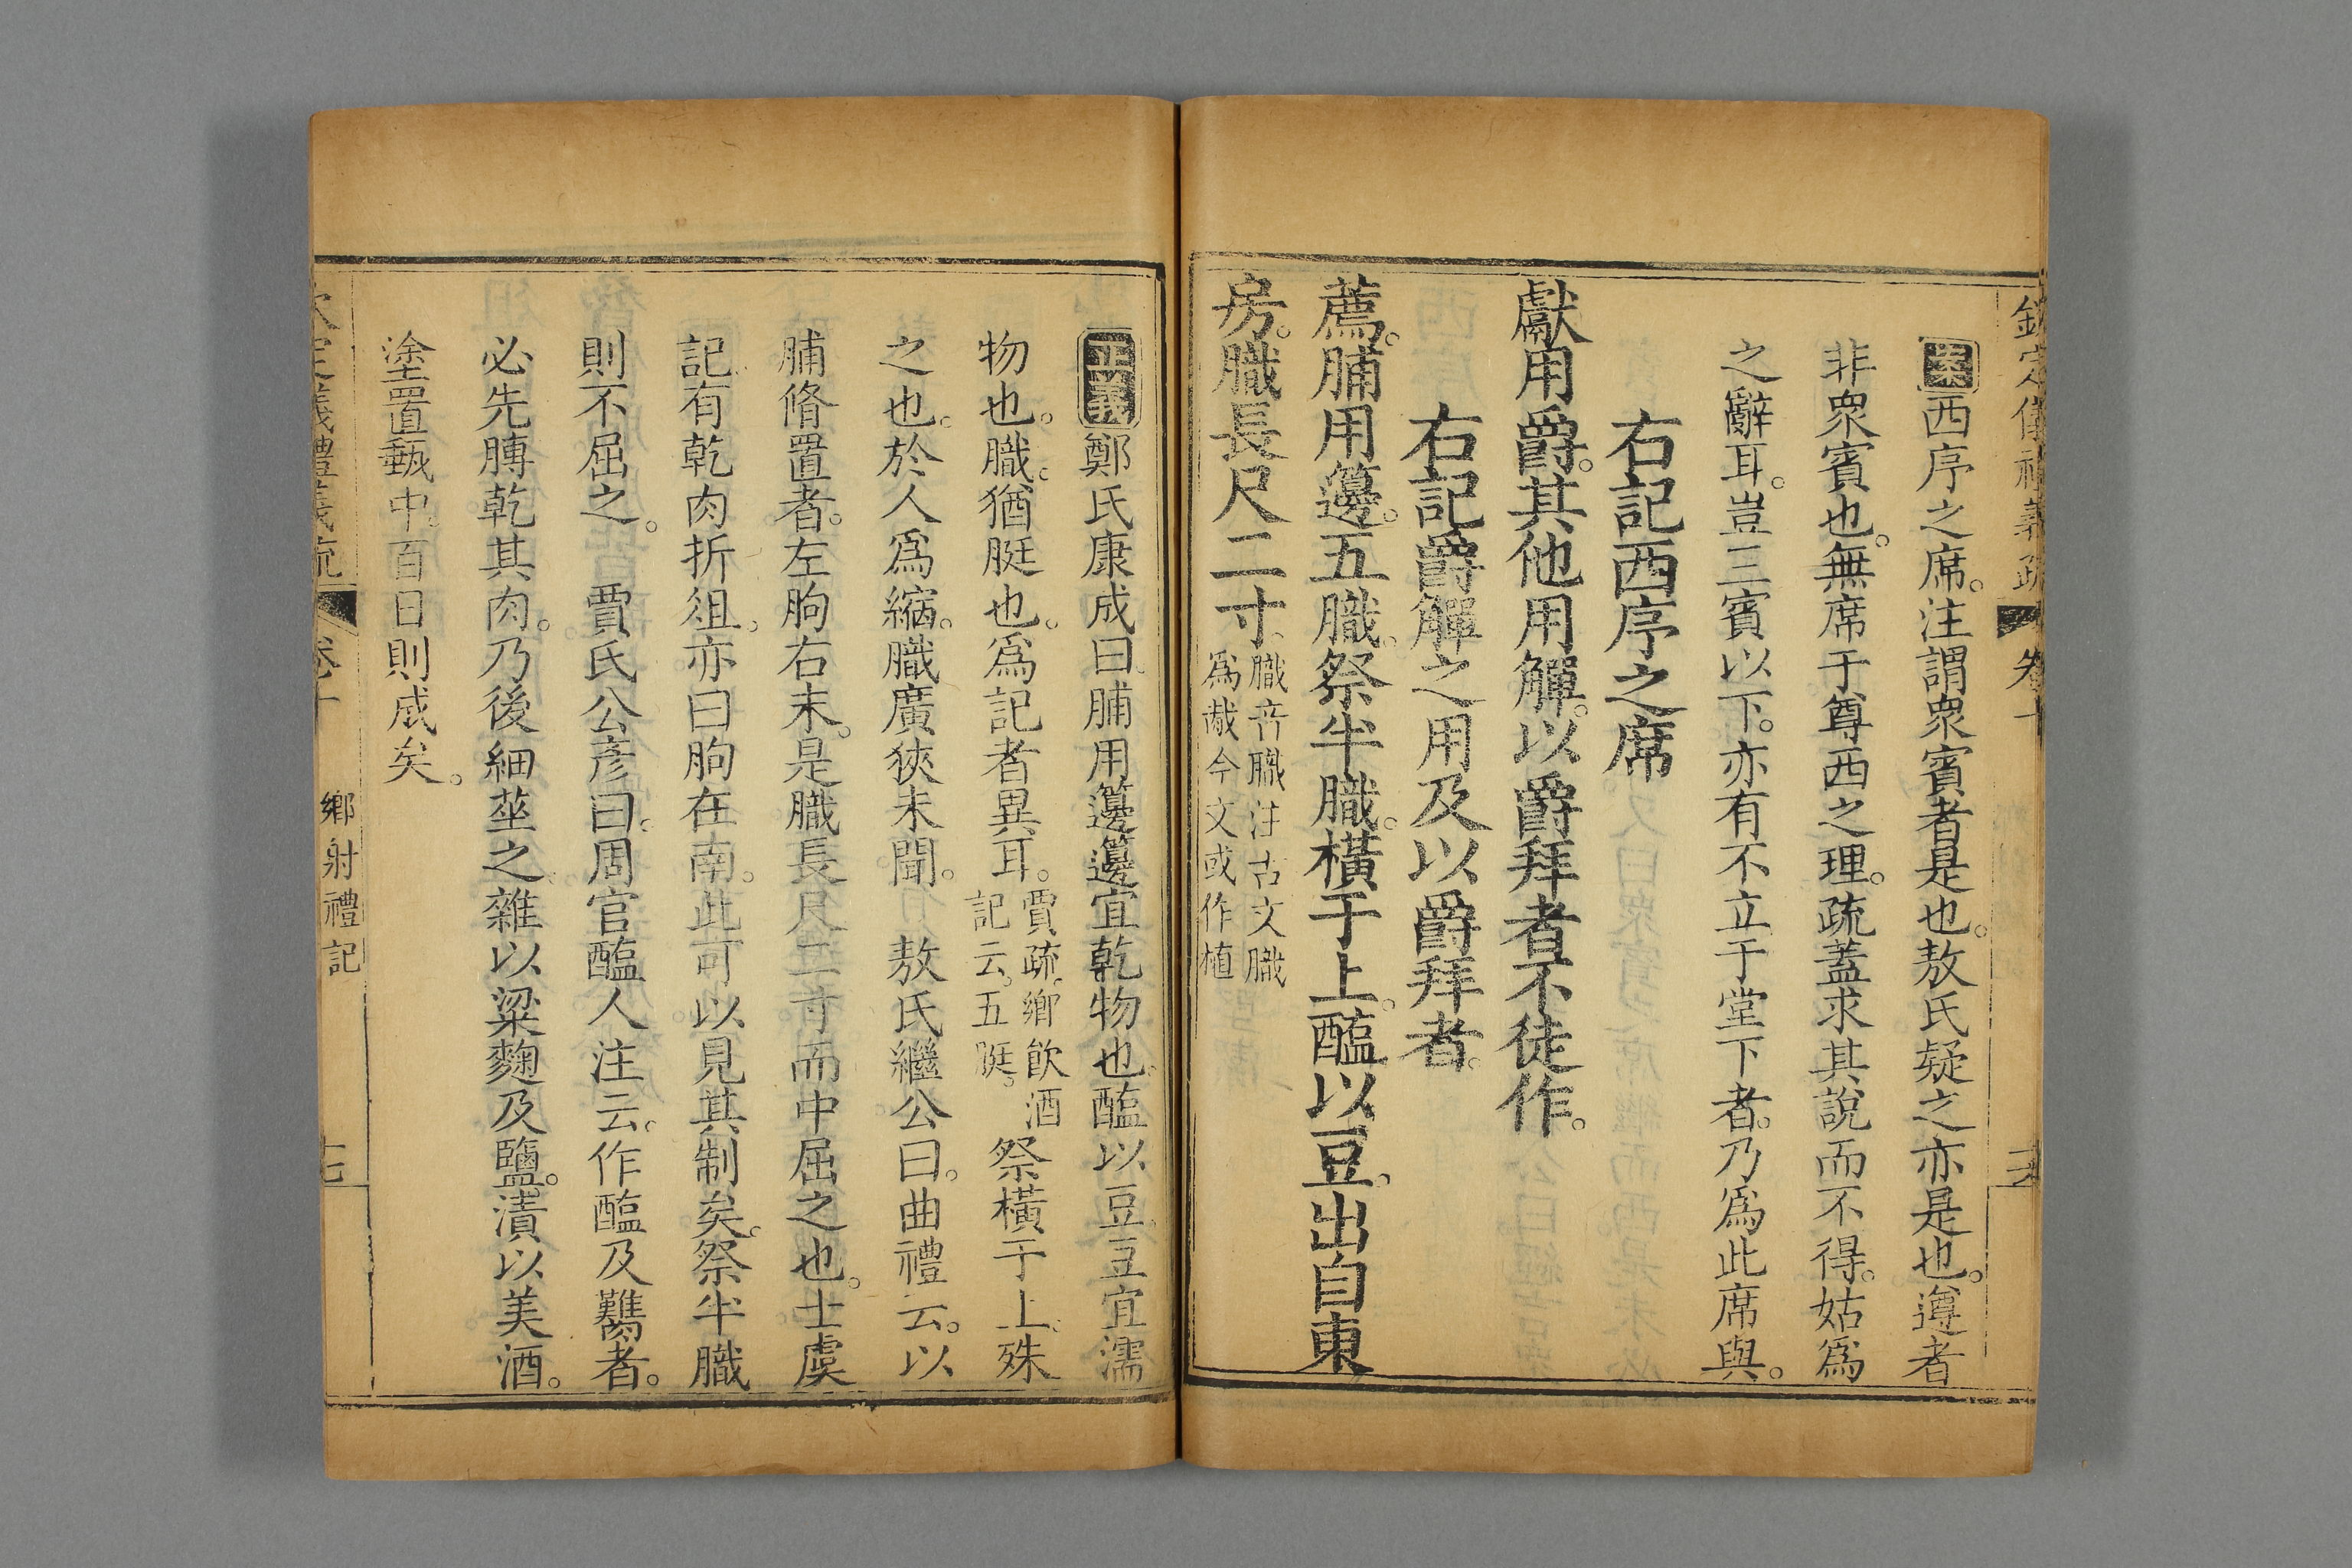 欽定儀禮義疏 卷十
案西序之席。注謂衆賓者是也。敖氏疑之亦是也。遵者
非衆賓也。無席于尊西之理。疏蓋求其說而不得。姑爲
之辭耳。豈三賓以下。亦有不立于堂下者。乃爲此席與。
右記西序之席
獻用爵。其他用觶。以爵拜者不徒作。
右記爵觶之用及以爵拜者。
薦。脯用籩。五膱。祭半膱。橫于上。醢以豆。出自東
房。膱長尺二寸。膱音職注古文膱
爲胾今文或作植
正義鄭氏康成曰。脯用籩籩宜乾物也。醢以豆。豆宜濡
物也。膱。猶脡也。爲記者異耳。賈疏。鄉飲酒
記云。五脡。祭橫于上。殊
之也。於人爲縮。膱廣狹未聞。 敖氏繼公曰。曲禮云。以
脯脩置者。左朐右末。是膱長尺二寸而中屈之也。士虞
記有乾肉折俎。亦曰朐在南。此可以見其制矣。祭半膱
則不屈之。 賈氏公彥曰。周官醢人注云。作醢及臡者。
必先膊乾其肉。乃後細莝之。雜以粱麴及鹽。漬以美酒。
塗置甀中。百日則成矣。
欽定儀禮義疏 卷十 鄉射禮記 十七